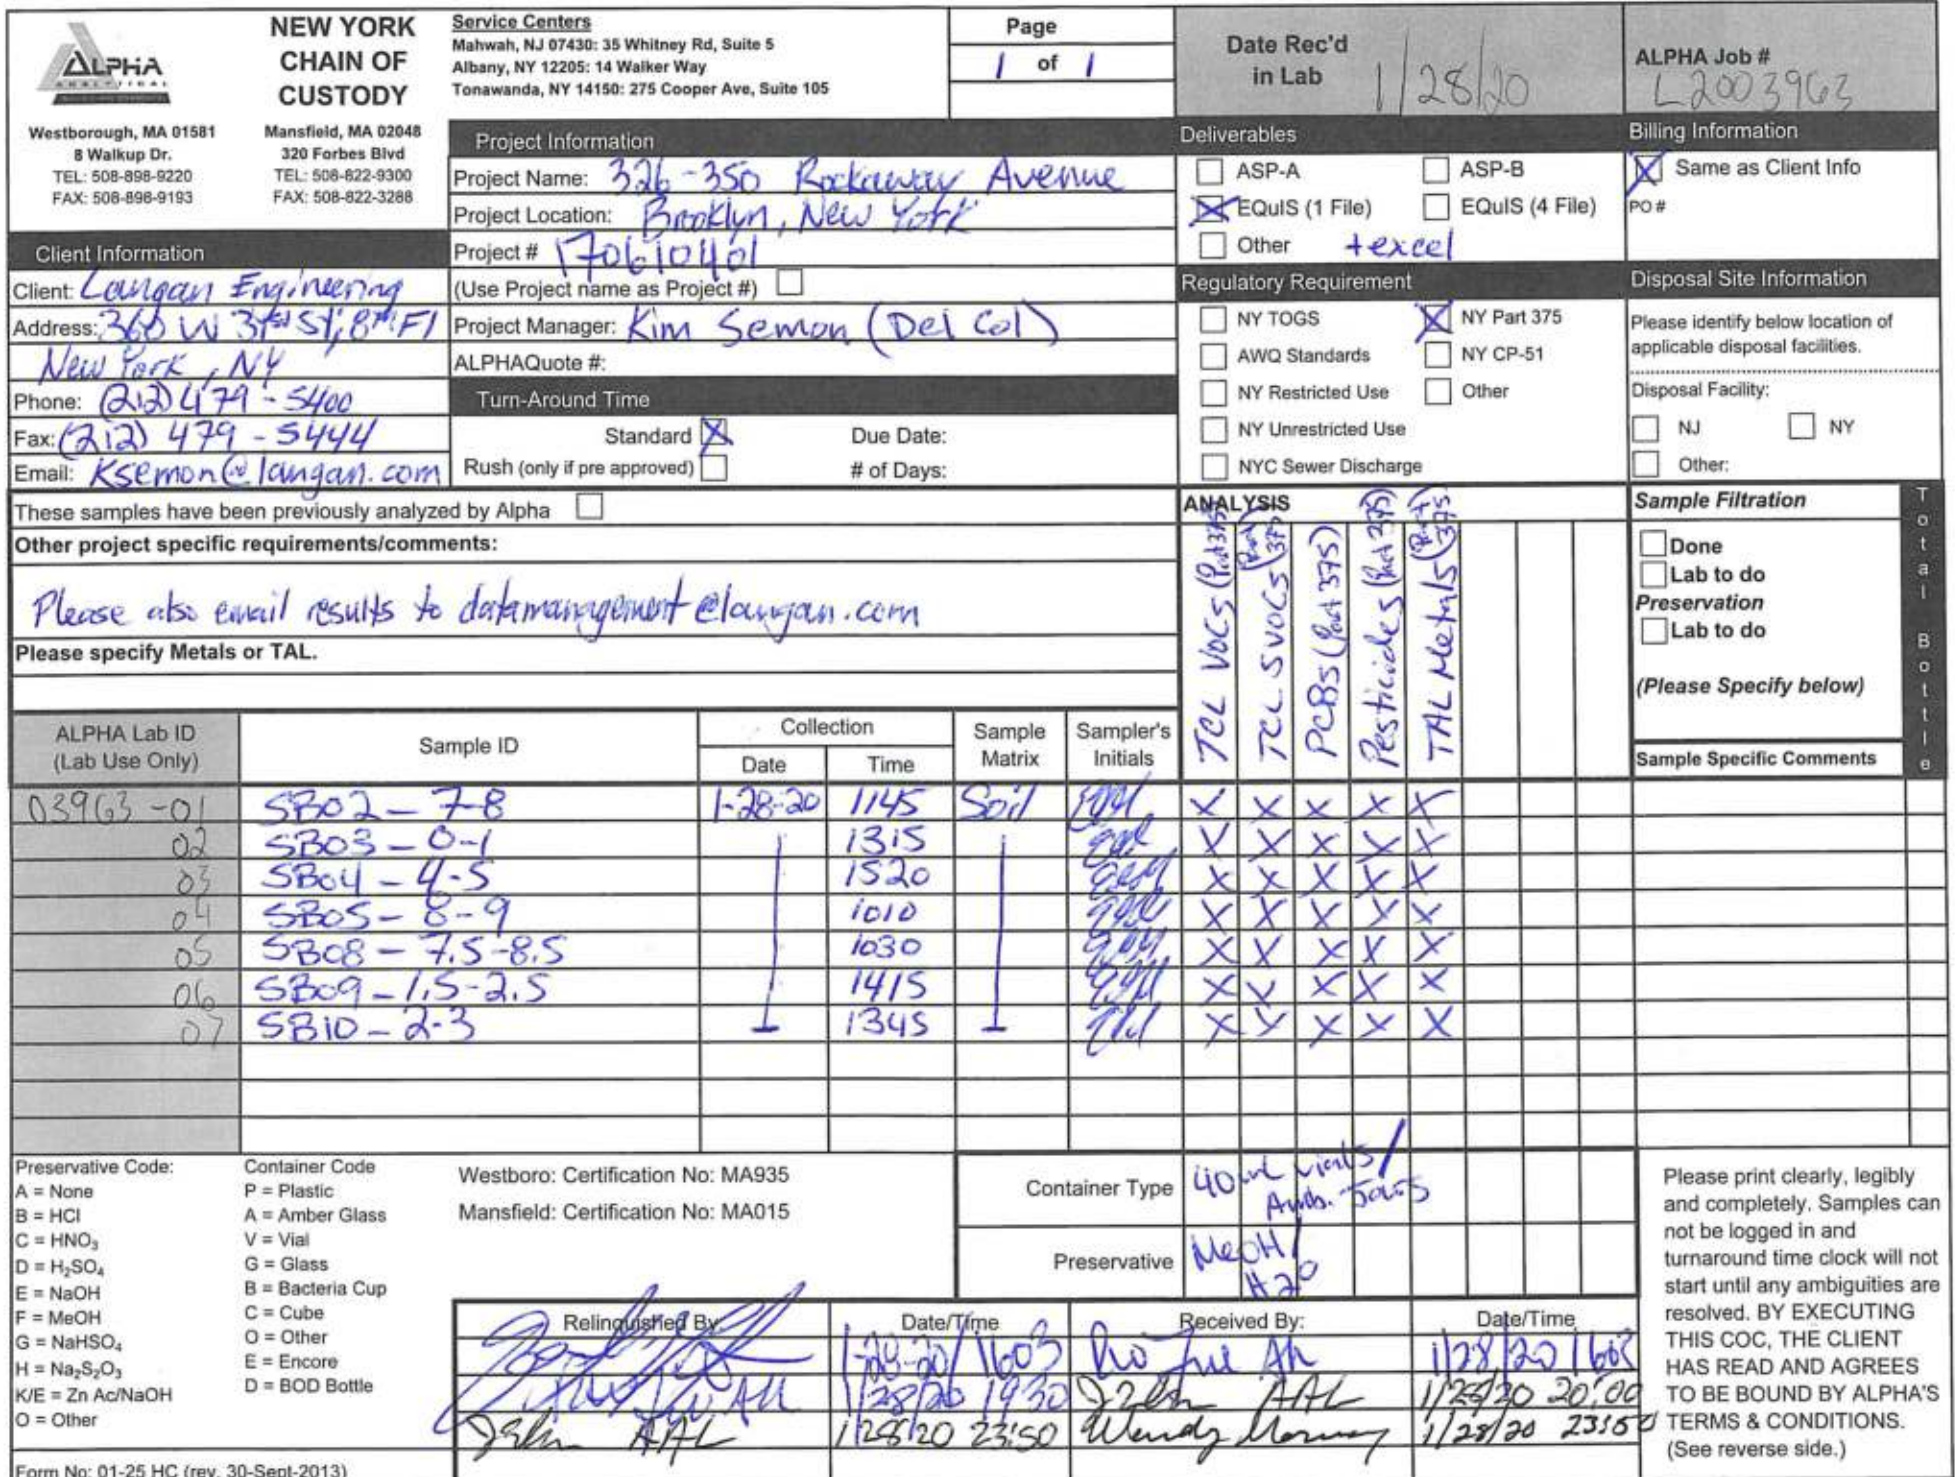 ALPHA
ANALYTICAL
NEW YORK
CHAIN OF
CUSTODY
Westborough, MA 01581
8 Walkup Dr.
TEL: 508-898-9220
FAX: 508-898-9193
Mansfield, MA 02048
320 Forbes Blvd
TEL: 508-822-9300
FAX: 508-822-3288
Service Centers
Mahwah, NJ 07430: 35 Whitney Rd, Suite 5
Albany, NY 12205: 14 Walker Way
Tonawanda, NY 14150: 275 Cooper Ave, Suite 105
Page
1 of 1
Date Rec'd
in Lab 1/28/20
ALPHA Job #
L2003963
Project Information
Project Name: 326-350 Rockaway Avenue
Project Location: Brooklyn, New York
Project # 170610401
(Use Project name as Project #)
Project Manager: Kim Semon (Del Col)
ALPHAQuote #:
Turn-Around Time
Standard X Due Date:
Rush (only if pre approved) # of Days:
Client Information
Client: Langan Engineering
Address: 360 W 31st St, 8th Fl
New York, NY
Phone: (212) 479-5400
Fax: (212) 479-5444
Email: Ksemon@langan.com
Deliverables
ASP-A ASP-B
X EQuIS (1 File) EQuIS (4 File)
Other + excel
Regulatory Requirement
NY TOGS X NY Part 375
AWQ Standards NY CP-51
NY Restricted Use Other
NY Unrestricted Use
NYC Sewer Discharge
Billing Information
X Same as Client Info
PO #
Disposal Site Information
Please identify below location of
applicable disposal facilities.
Disposal Facility:
NJ NY
Other:
These samples have been previously analyzed by Alpha
Other project specific requirements/comments:
Please also email results to datamanagement@langan.com
Please specify Metals or TAL.
ANALYSIS
TCL VOCs (Part 375)
TCL SVOCs (Part 375)
PCBs (Part 375)
Pesticides (Part 375)
TAL Metals (Part 375)
Sample Filtration
Done
Lab to do
Preservation
Lab to do
(Please Specify below)
Sample Specific Comments
Total Bottle
ALPHA Lab ID
(Lab Use Only)
Sample ID
Collection
Date Time
Sample
Matrix
Sampler's
Initials
03963-01 SB02-7-8 1-28-20 1145 Soil X X X X X
02 SB03-0-1 1315 X X X X X
03 SB04-4-5 1520 X X X X X
04 SB05-8-9 1010 X X X X X
05 SB08-7.5-8.5 1030 X X X X X
06 SB09-1.5-2.5 1415 X X X X X
07 SB10-2-3 1345 X X X X X
Preservative Code:
A = None
B = HCl
C = HNO₃
D = H₂SO₄
E = NaOH
F = MeOH
G = NaHSO₄
H = Na₂S₂O₃
K/E = Zn Ac/NaOH
O = Other
Container Code
P = Plastic
A = Amber Glass
V = Vial
G = Glass
B = Bacteria Cup
C = Cube
O = Other
E = Encore
D = BOD Bottle
Westboro: Certification No: MA935
Mansfield: Certification No: MA015
Container Type 40ml vials/
Amb. Jars
Preservative MeOH/
H20
Relinquished By: Date/Time Received By: Date/Time
1-28-20/1603 1/28/20 1603
1/28/20 19:30 AAL 1/28/20 20:00
AAL 1/28/20 23:50 Wendy 1/28/20 23:50
Please print clearly, legibly
and completely. Samples can
not be logged in and
turnaround time clock will not
start until any ambiguities are
resolved. BY EXECUTING
THIS COC, THE CLIENT
HAS READ AND AGREES
TO BE BOUND BY ALPHA'S
TERMS & CONDITIONS.
(See reverse side.)
Form No: 01-25 HC (rev. 30-Sept-2013)